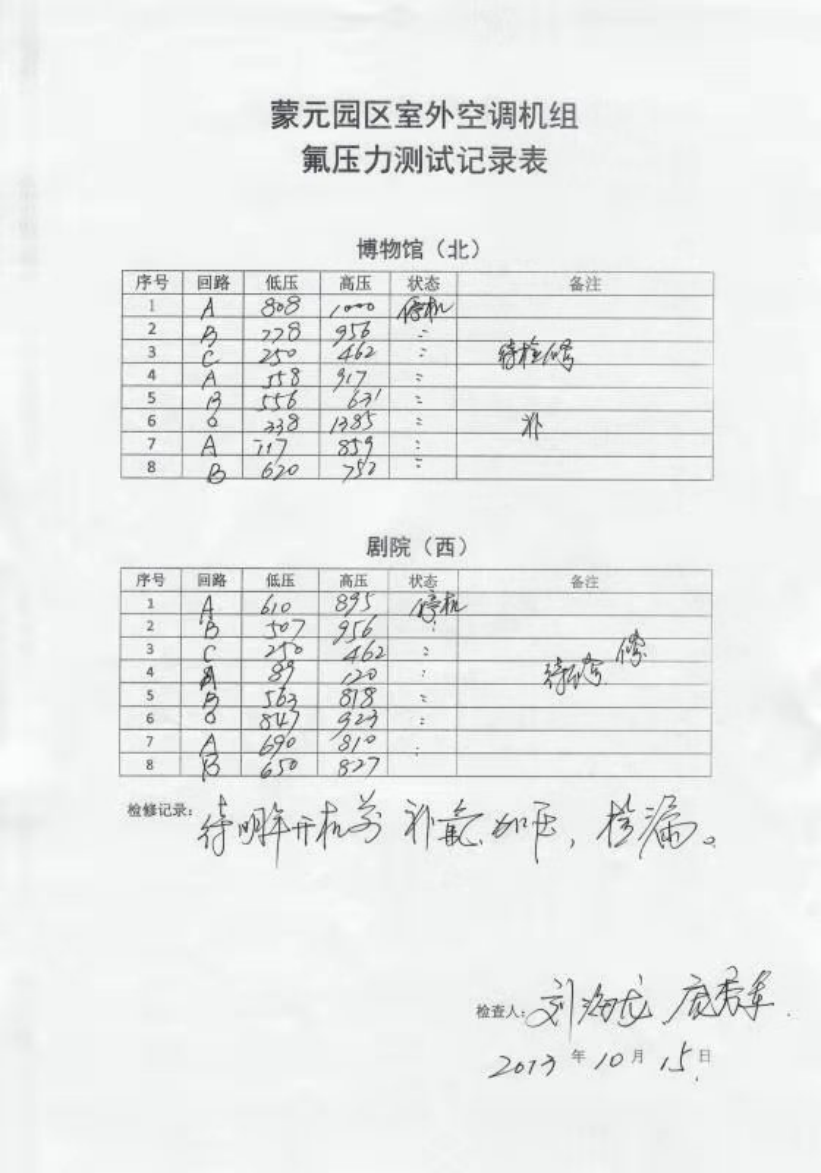 蒙元园区室外空调机组
氟压力测试记录表
博物馆（北）
序号 回路 低压 高压 状态 备注
1 A 808 1000 停机
2 B 778 956 〃
3 C 250 462 〃 待检修
4 A 558 917 〃
5 B 556 631 〃
6 338 1385 〃 补
7 A 859 〃
8 B 620 752 〃
剧院（西）
序号 回路 低压 高压 状态 备注
1 A 610 895 停机
2 B 507 956 〃
3 C 250 462 〃 修
4 A 89 120 〃
5 B 563 818 〃
6 847 923 〃
7 A 690 810 〃
8 B 650 827
检修记录：待明年开机前补氟加压，检漏。
检查人：刘海龙
2013 年 10 月 15 日